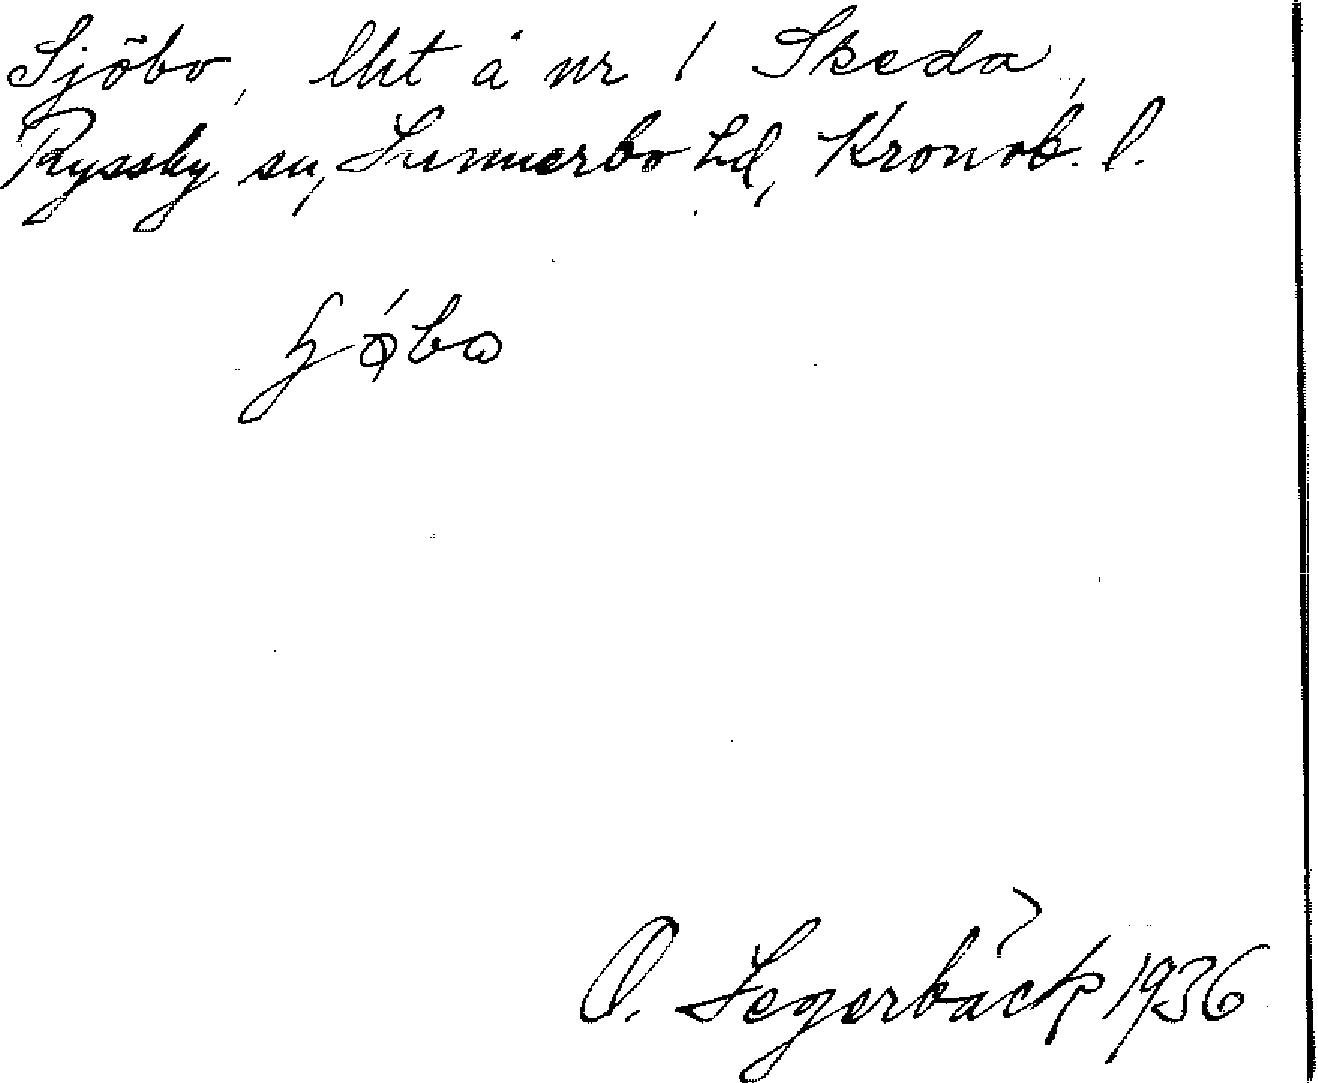 Sjöbo, lht å nr 1 Skeda,
Ryssby sn, Sunnerbo hd, Kronob. l.
O. Segerbäck 1936